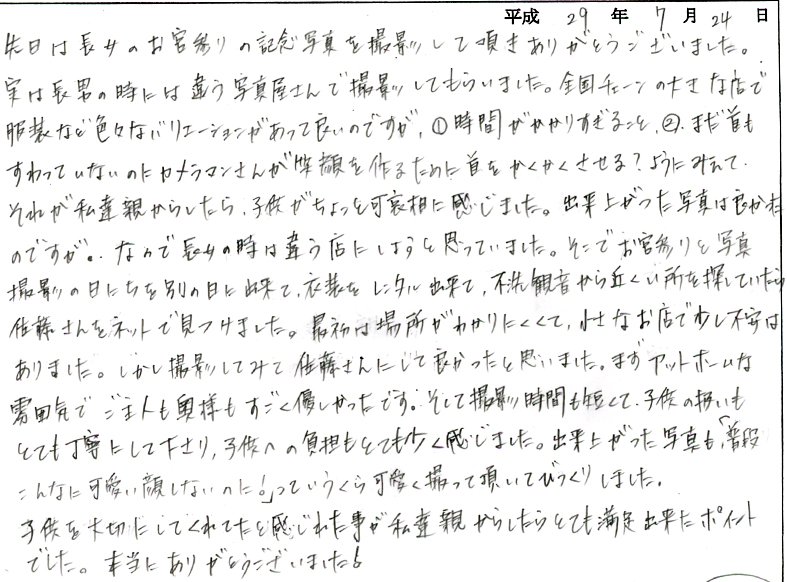 平成 29 年 7 月 24 日
先日は長女のお宮参りの記念写真を撮影して頂きありがとうございました。
実は長男の時には違う写真屋さんで撮影してもらいました。全国チェーンの大きな店で
服装など色々なバリエーションがあって良いのですが、①時間がかかりすぎること、②まだ首も
すわっていないのにカメラマンさんが笑顔を作るために首をかくかくさせる?ようにみえて、
それが私達親からしたら、子供がちょっと可哀相に感じました。出来上がった写真は良かった
のですが。なので長女の時は違う店にしようと思っていました。そこでお宮参りと写真
撮影の日にちを別の日に出来て、衣装をレンタル出来て、不洗観音から近くい所を探していたら
佐藤さんをネットで見つけました。最初は場所がわかりにくくて、小さなお店で少し不安は
ありました。しかし撮影してみて佐藤さんにして良かったと思いました。まずアットホームな
雰囲気でご主人も奥様もすごく優しかったです。そして撮影時間も短くて、子供の扱いも
とても丁寧にして下さり、子供への負担もとても少く感じました。出来上がった写真も、「普段
こんなに可愛い顔しないのに!」っていうくら可愛く撮って頂いてびっくりしました。
子供を大切にしてくれてたと感じれた事が私達親からしたらとても満足出来たポイント
でした。本当にありがとうございました!